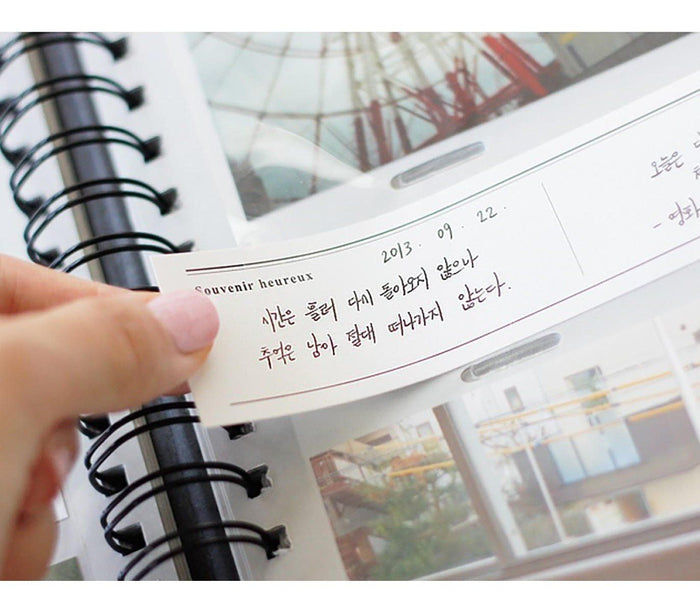 2013. 09. 22.
Souvenir heureux
시간은 흘러 다시 돌아오지 않으나
추억은 남아 절대 떠나가지 않는다.
오늘은
- 영화